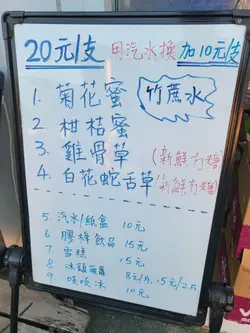 20元/支 用汽水換 加10元/支
1. 菊花蜜
竹蔗水
2. 柑桔蜜
3. 雞骨草 (新鮮
4. 白花蛇舌草 (新鮮
5. 汽水/紙盒 10元
6 膠樽飲品 15元
7 雪糕 15元
8 冰鎮菠蘿 8元/片, 15元/2片
9. 啫啫冰 10元